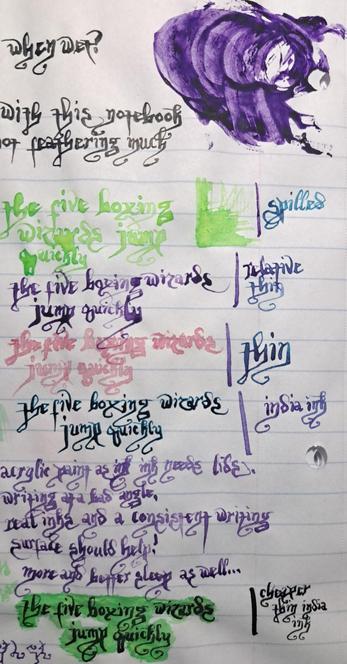 when wet?
with this notebook
not feathering much
the five boxing
wizards jump
quickly
spilled
the five boxing wizards
jump quickly
relative
thin
the five boxing wizards
jump quickly
thin
the five boxing wizards
jump quickly
india ink
acrylic paint as ink needs
writing at a bad angle,
real inks and a consistent writing
surface should help!
more and better sleep as well...
the five boxing wizards
jump quickly
cheaper
thin india
ink